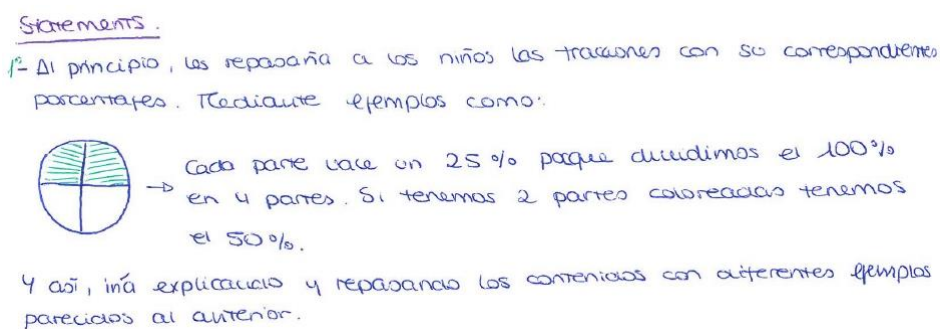 Statements.
1º- Al principio, les repasaría a los niños las fracciones con su correspondientes
porcentajes. Mediante ejemplos como:
Cada parte vale un 25% porque dividimos el 100%
en 4 partes. Si tenemos 2 partes coloreadas tenemos
el 50%.
Y así, iría explicando y repasando los contenidos con diferentes ejemplos
parecidos al anterior.